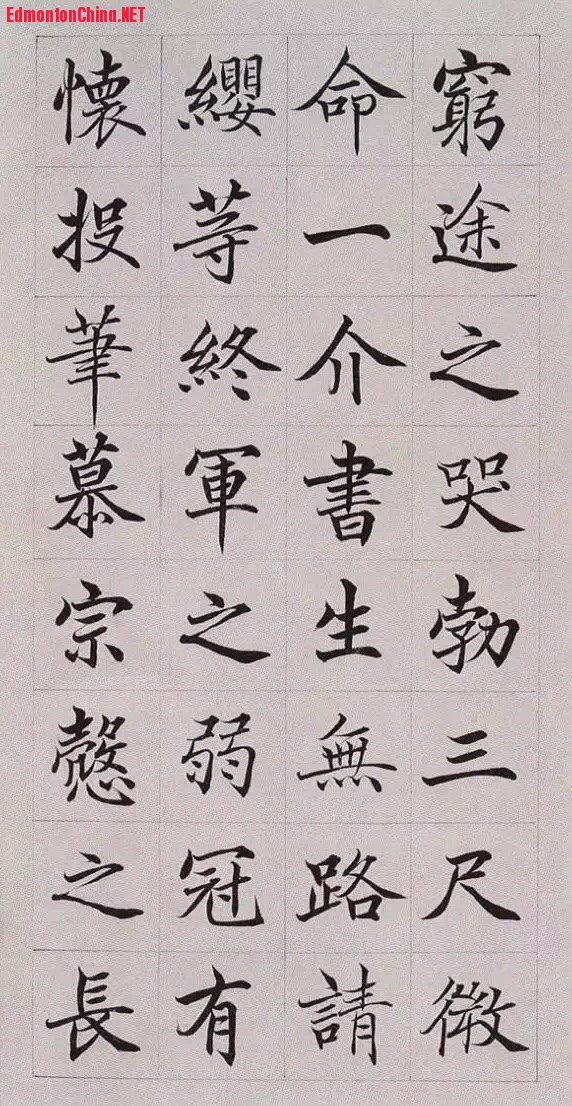 EdmontonChina.NET
窮途之哭勃三尺微
命一介書生無路請
纓等終軍之弱冠有
懐投筆慕宗慤之長